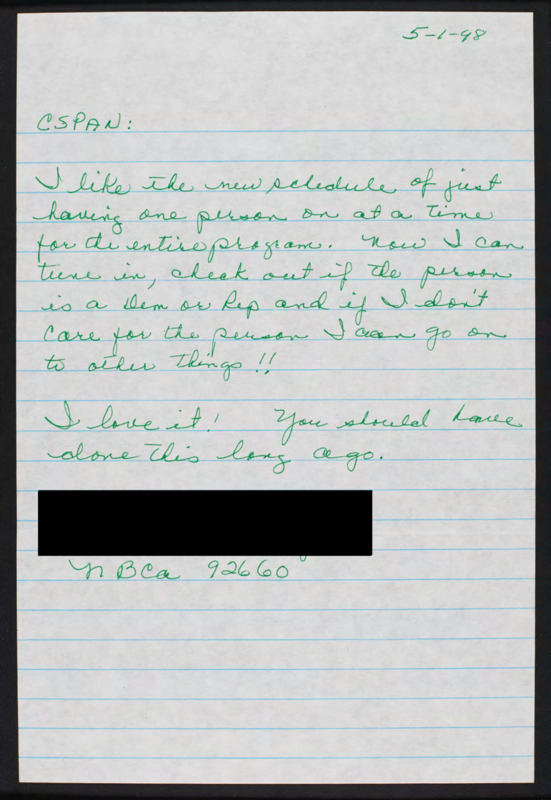 5-1-98
CSPAN:
I like the new schedule of just
having one person on at a time
for the entire program. Now I can
tune in, check out if the person
is a Dem or Rep and if I don't
care for the person I can go on
to other things!!
I love it! You should have
done this long ago.
NBCa 92660